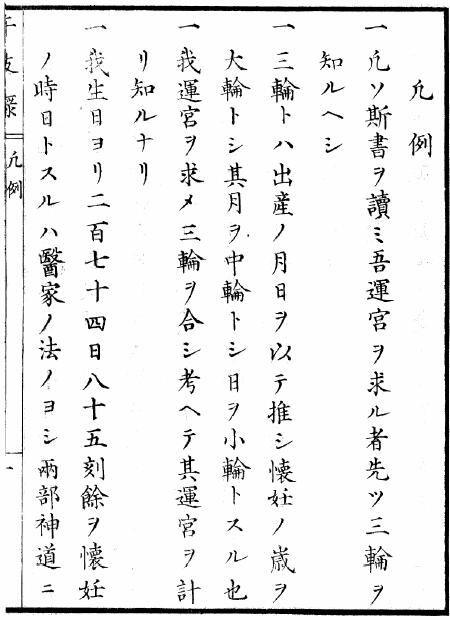 凡例
一凡ソ斯書ヲ讀ミ吾運宮ヲ求ル者先ツ三輪ヲ
知ルヘシ
一三輪トハ出産ノ月日ヲ以テ推シ懐妊ノ歳ヲ
大輪トシ其月ヲ中輪トシ日ヲ小輪トスル也
一我運宮ヲ求メ三輪ヲ合シ考ヘテ其運宮ヲ計
リ知ルナリ
一我生日ヨリ二百七十四日八十五刻餘ヲ懐妊
ノ時日トスルハ醫家ノ法ノヨシ兩部神道ニ
凡例
一